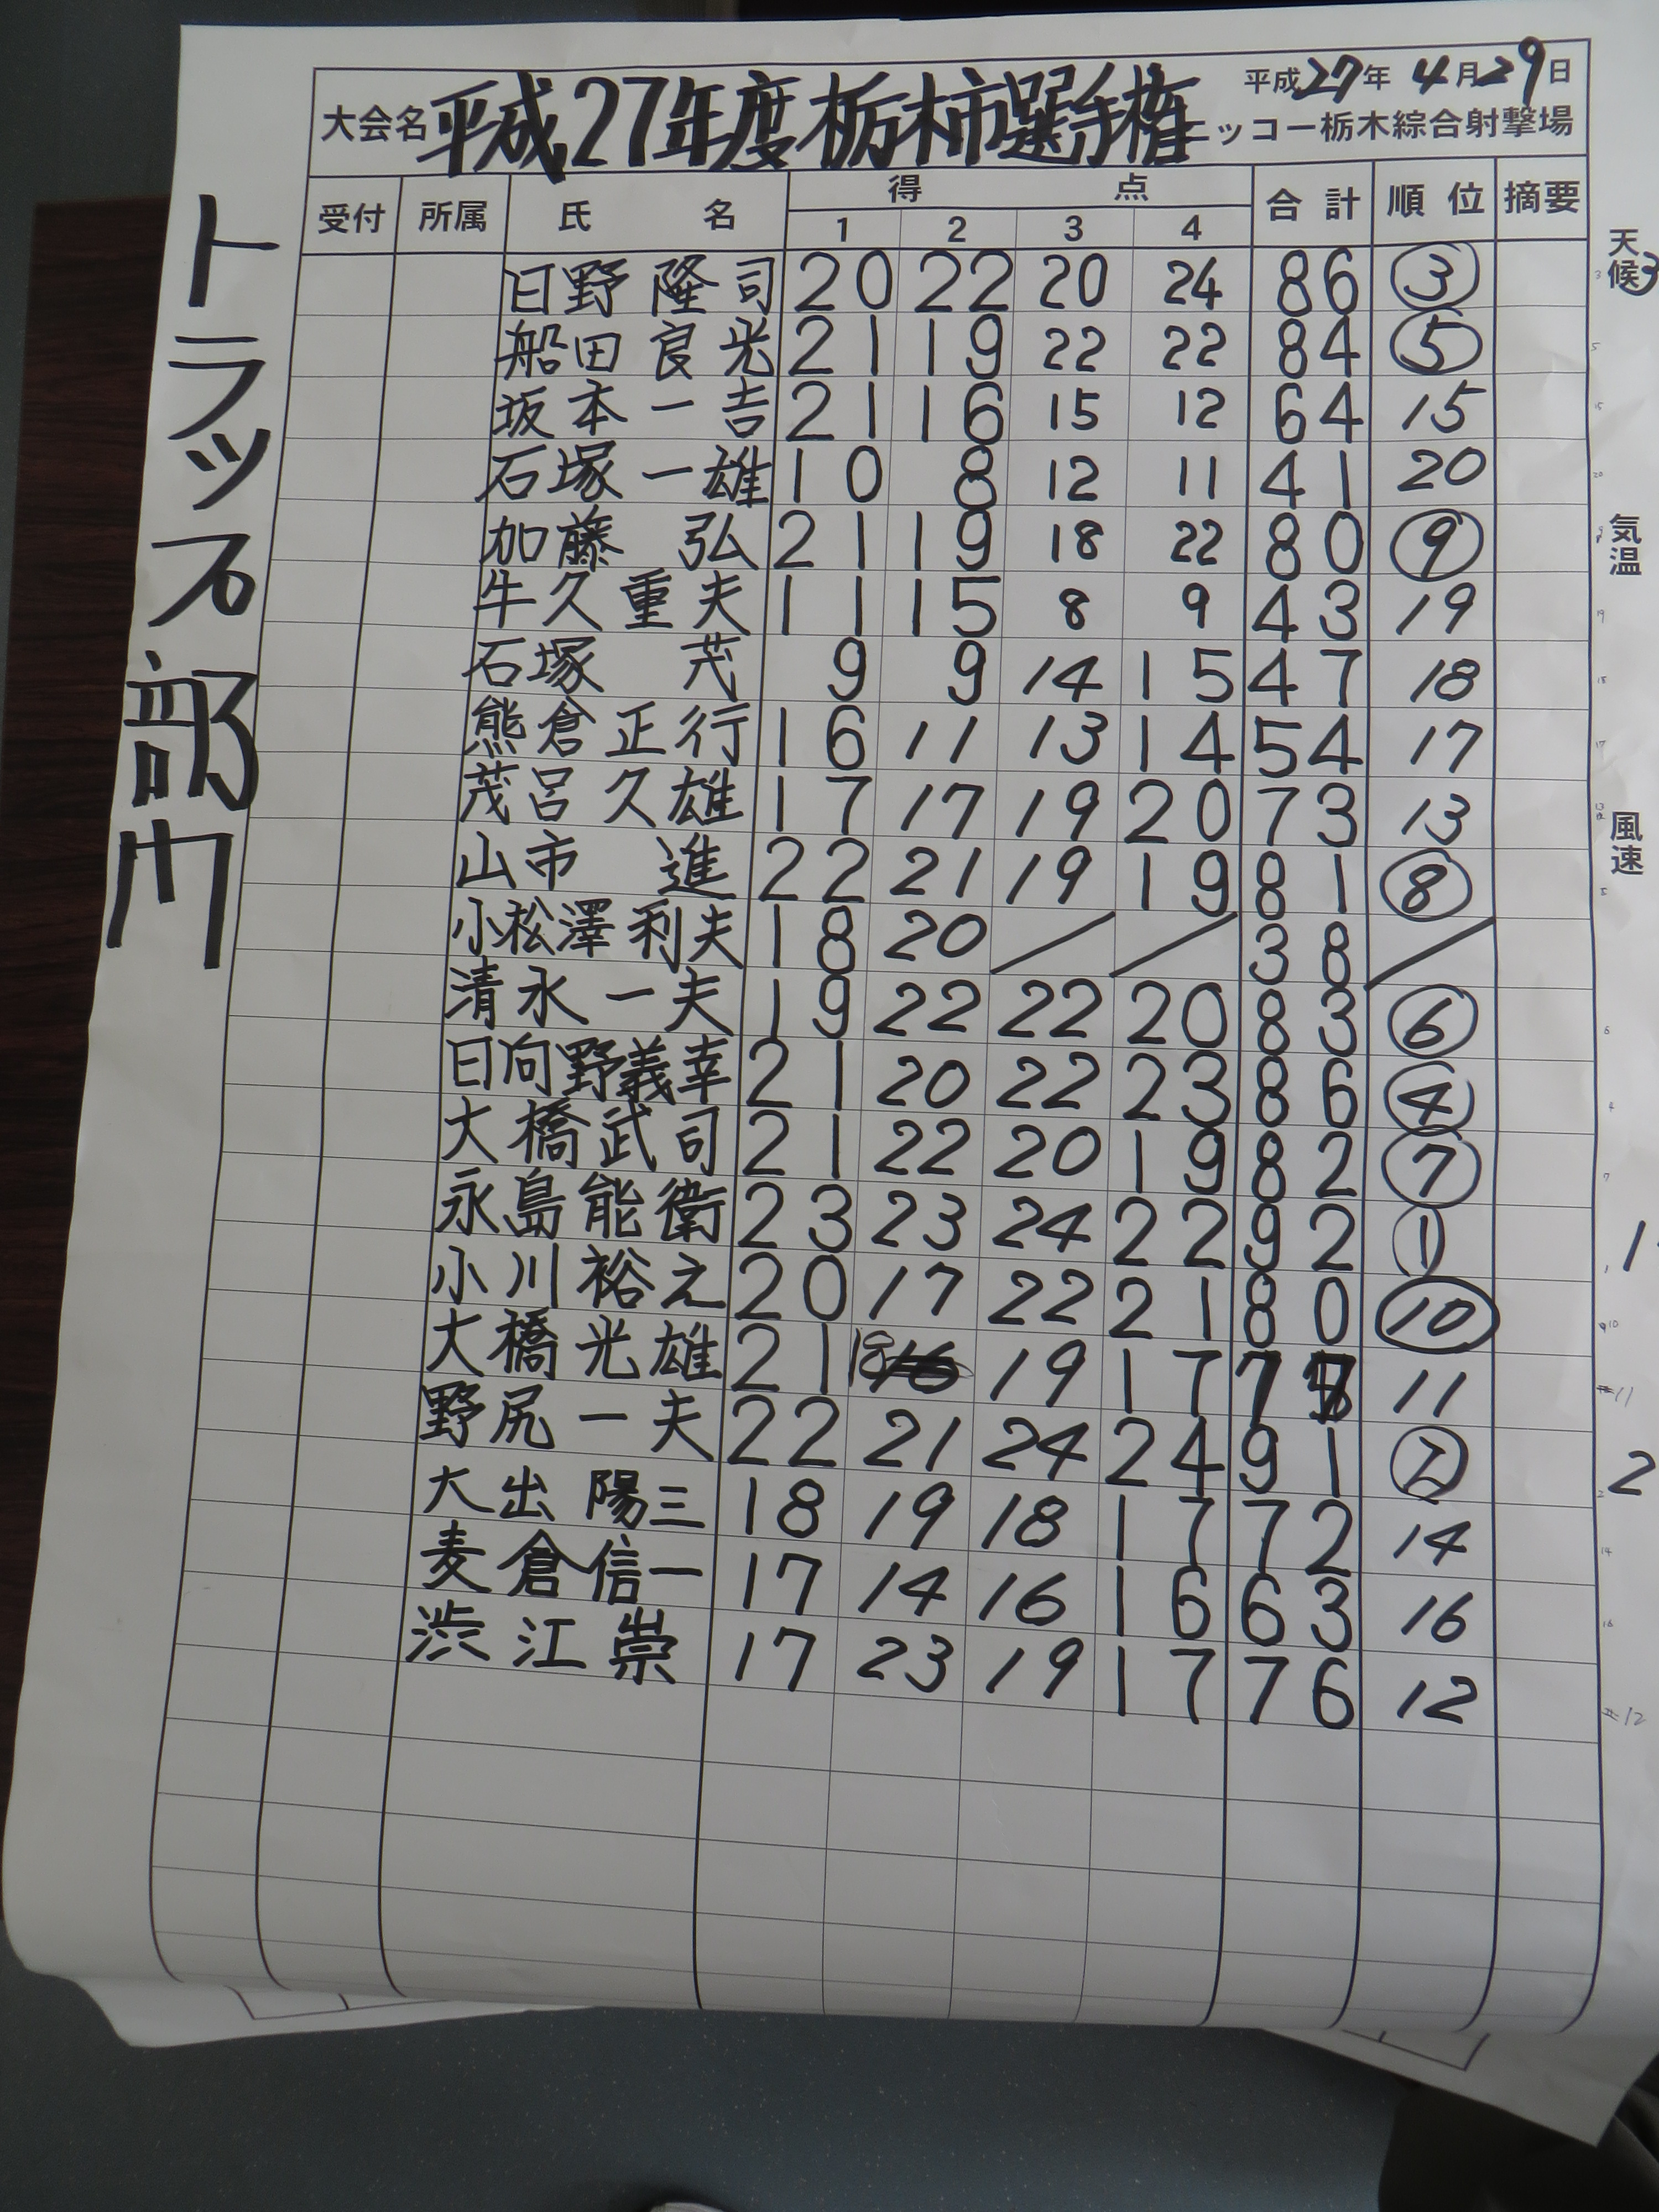 平成27年 4月29日
大会名 平成27年度栃木市選手権 ニッコー栃木綜合射撃場
トラップ部門
受付 所属 氏名 得点 合計 順位 摘要
1 2 3 4
日野隆司 20 22 20 24 86 ③
船田良光 21 19 22 22 84 ⑤
坂本一吉 21 16 15 12 64 15
石塚一雄 10 8 12 11 41 20
加藤弘 21 19 18 22 80 ⑨
牛久重夫 11 15 8 9 43 19
石塚茂 9 9 14 15 47 18
熊倉正行 16 11 13 14 54 17
茂呂久雄 17 17 19 20 73 13
山市進 22 21 19 19 81 ⑧
小松澤利夫 18 20 / / 38 /
清永一夫 19 22 22 20 83 ⑥
日向野義幸 21 20 22 23 86 ④
大橋武司 21 22 20 19 82 ⑦
永島能衛 23 23 24 22 92 ①
小川裕之 20 17 22 21 80 ⑩
大橋光雄 21 18 19 17 11
野尻一夫 22 21 24 24 91 ②
大出陽三 18 19 18 17 72 14
麦倉信一 17 14 16 16 63 16
渋江崇 17 23 19 17 76 12
天候
3
気温
風速
1
2